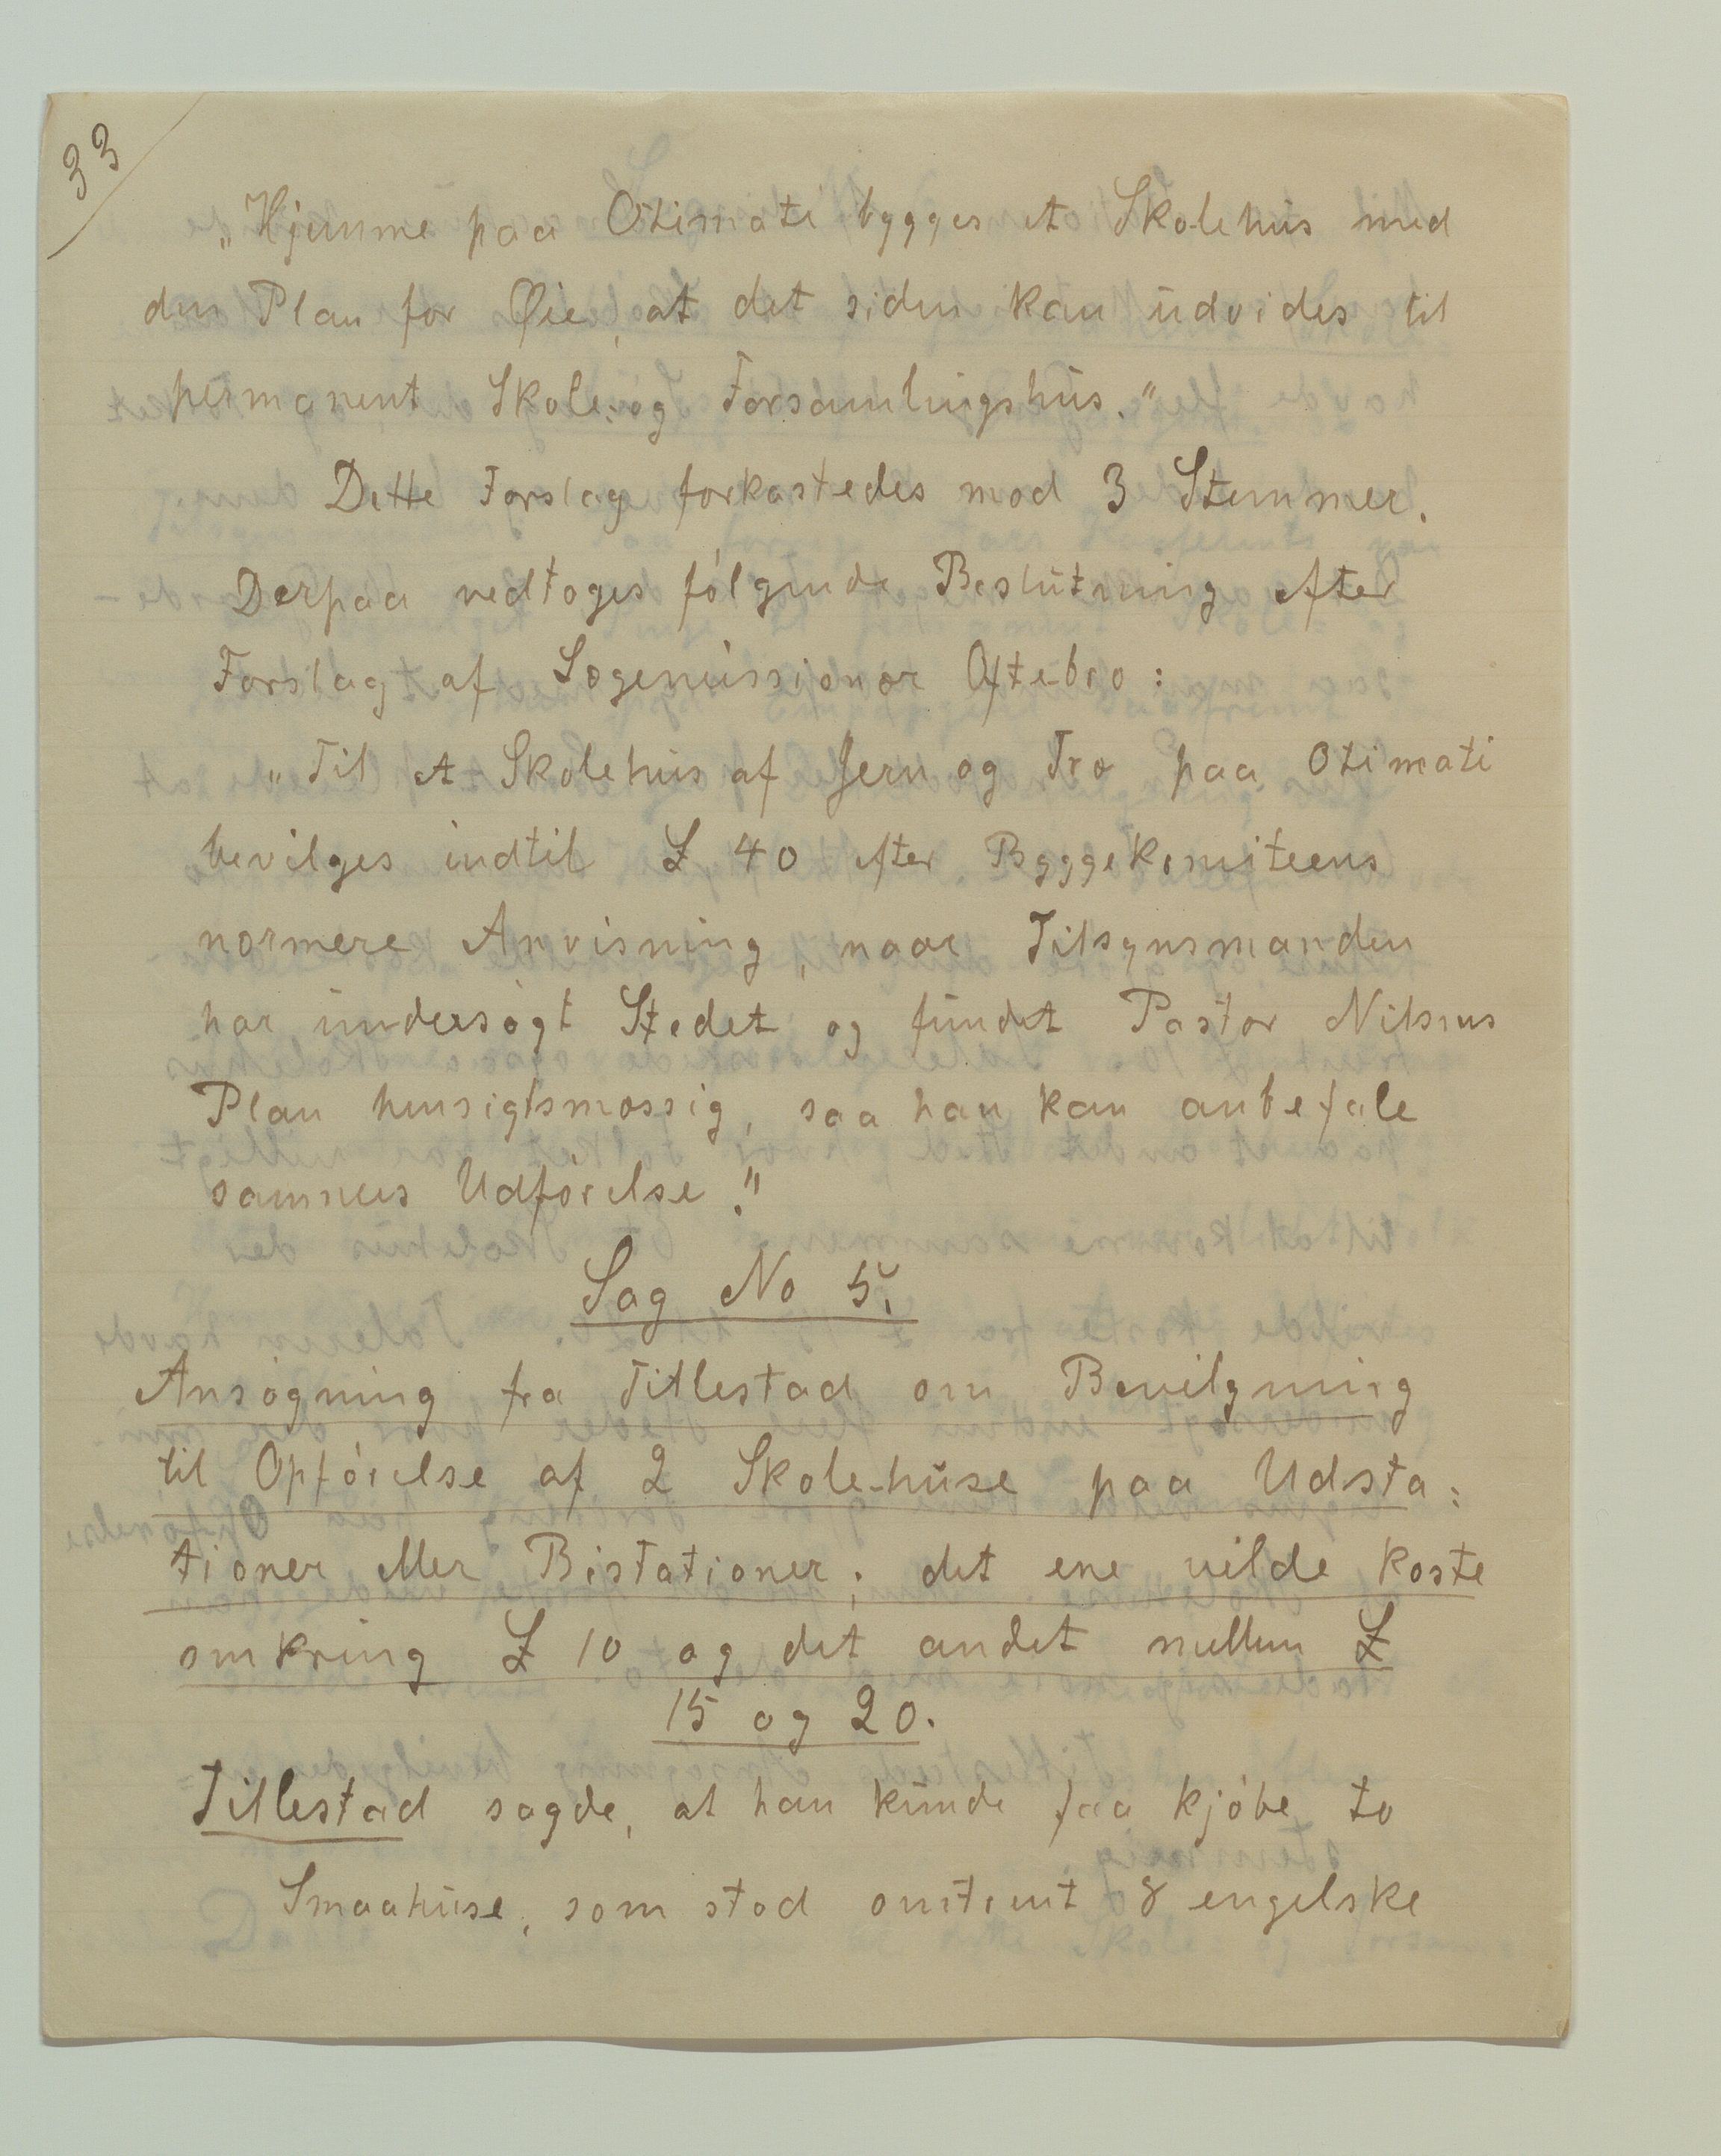 33
„Hjemme paa Otimati bygges et Skolehus med
den Plan for Øie, at det siden kan udvides til
permanent Skole: og Forsamlingshus."
Dette Forslag forkastedes mod 3 Stemmer.
Derpaa vedtoges følgende Beslutning efter
Forslag af Lægemissionær Oftebro:
„Til et Skolehus af Jern og Træ paa Otimati
bevilges indtil £ 40 efter Byggekomiteens
nærmere Anvisning, naar Tilsynsmanden
har undersøgt Stedet og fundet Pastor Nilsens
Plan hensigtsmæssig, saa han kan anbefale
sammes Udførelse."
Sag No 5.
Ansøgning fra Titlestad om Bevilgning
til Opførelse af 2 Skole-huse paa Udsta:
tioner eller Bistationer; det ene vilde koste
omkring £ 10 og det andet mellem £
15 og 20.
Titlestad sagde, at han kunde faa kjøbe to
Smaahuse, som stod omtrent 8 engelske